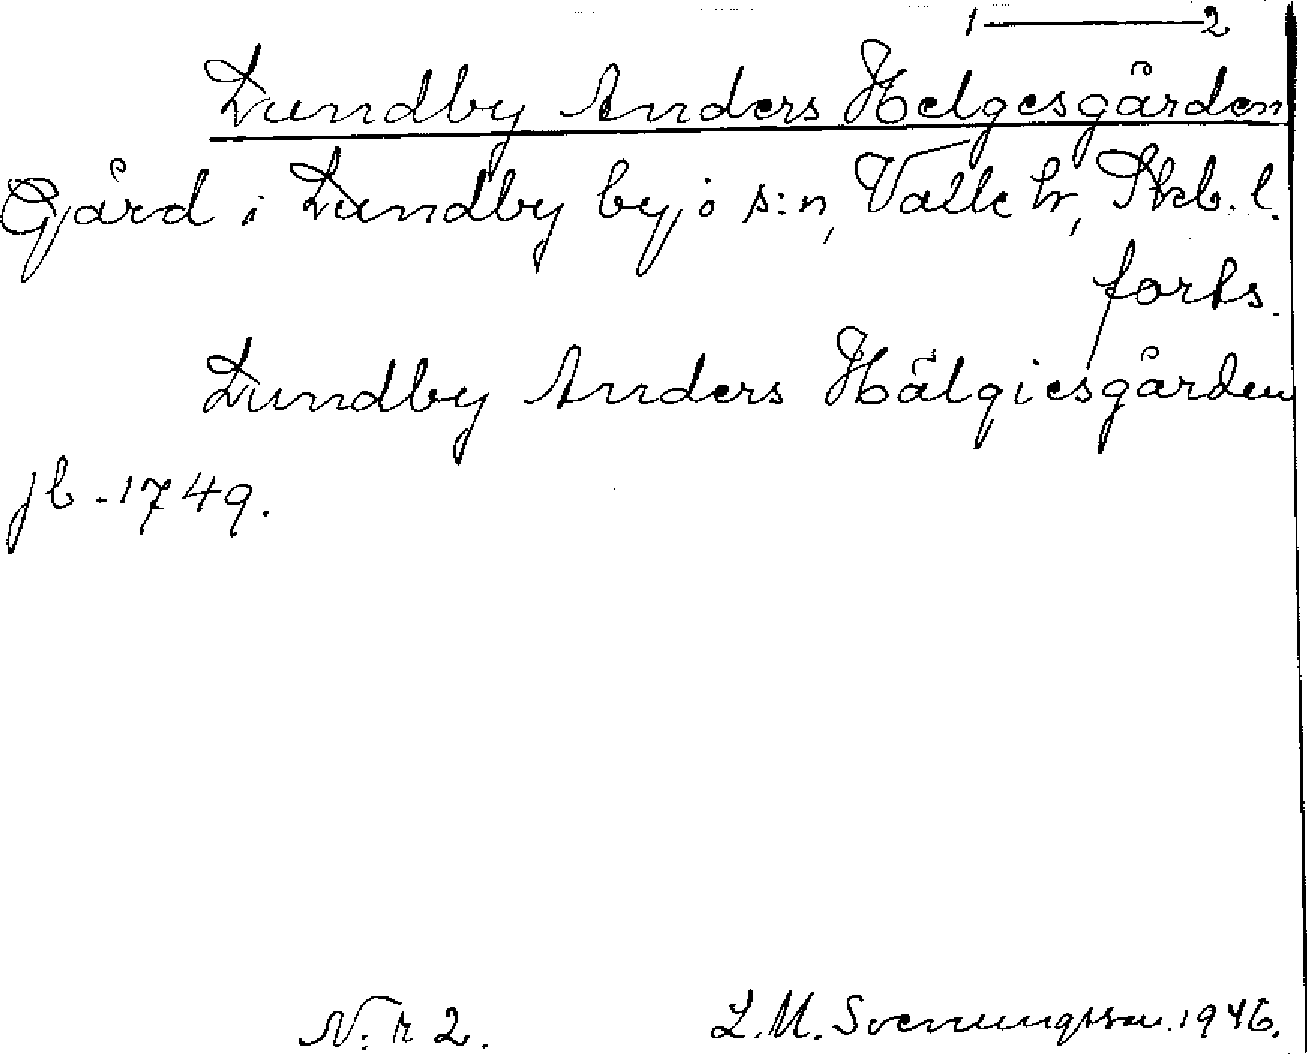 1 — 2
Lundby Anders Helgesgården
Gård i Lundby by, i s:n, Valle hr, Skb. l.
forts.
Lundby Anders Hälgiesgården
jb - 1749.
N:r 2. L.M. Svenungsson 1946.